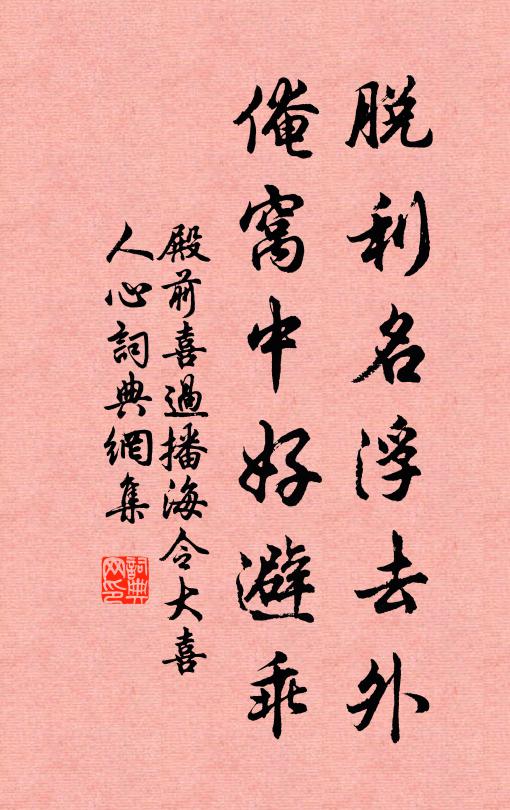 脱利名浮去外
俺窩中好避乖
殿前喜過播海令大喜
人心詞典網集
詞典網印